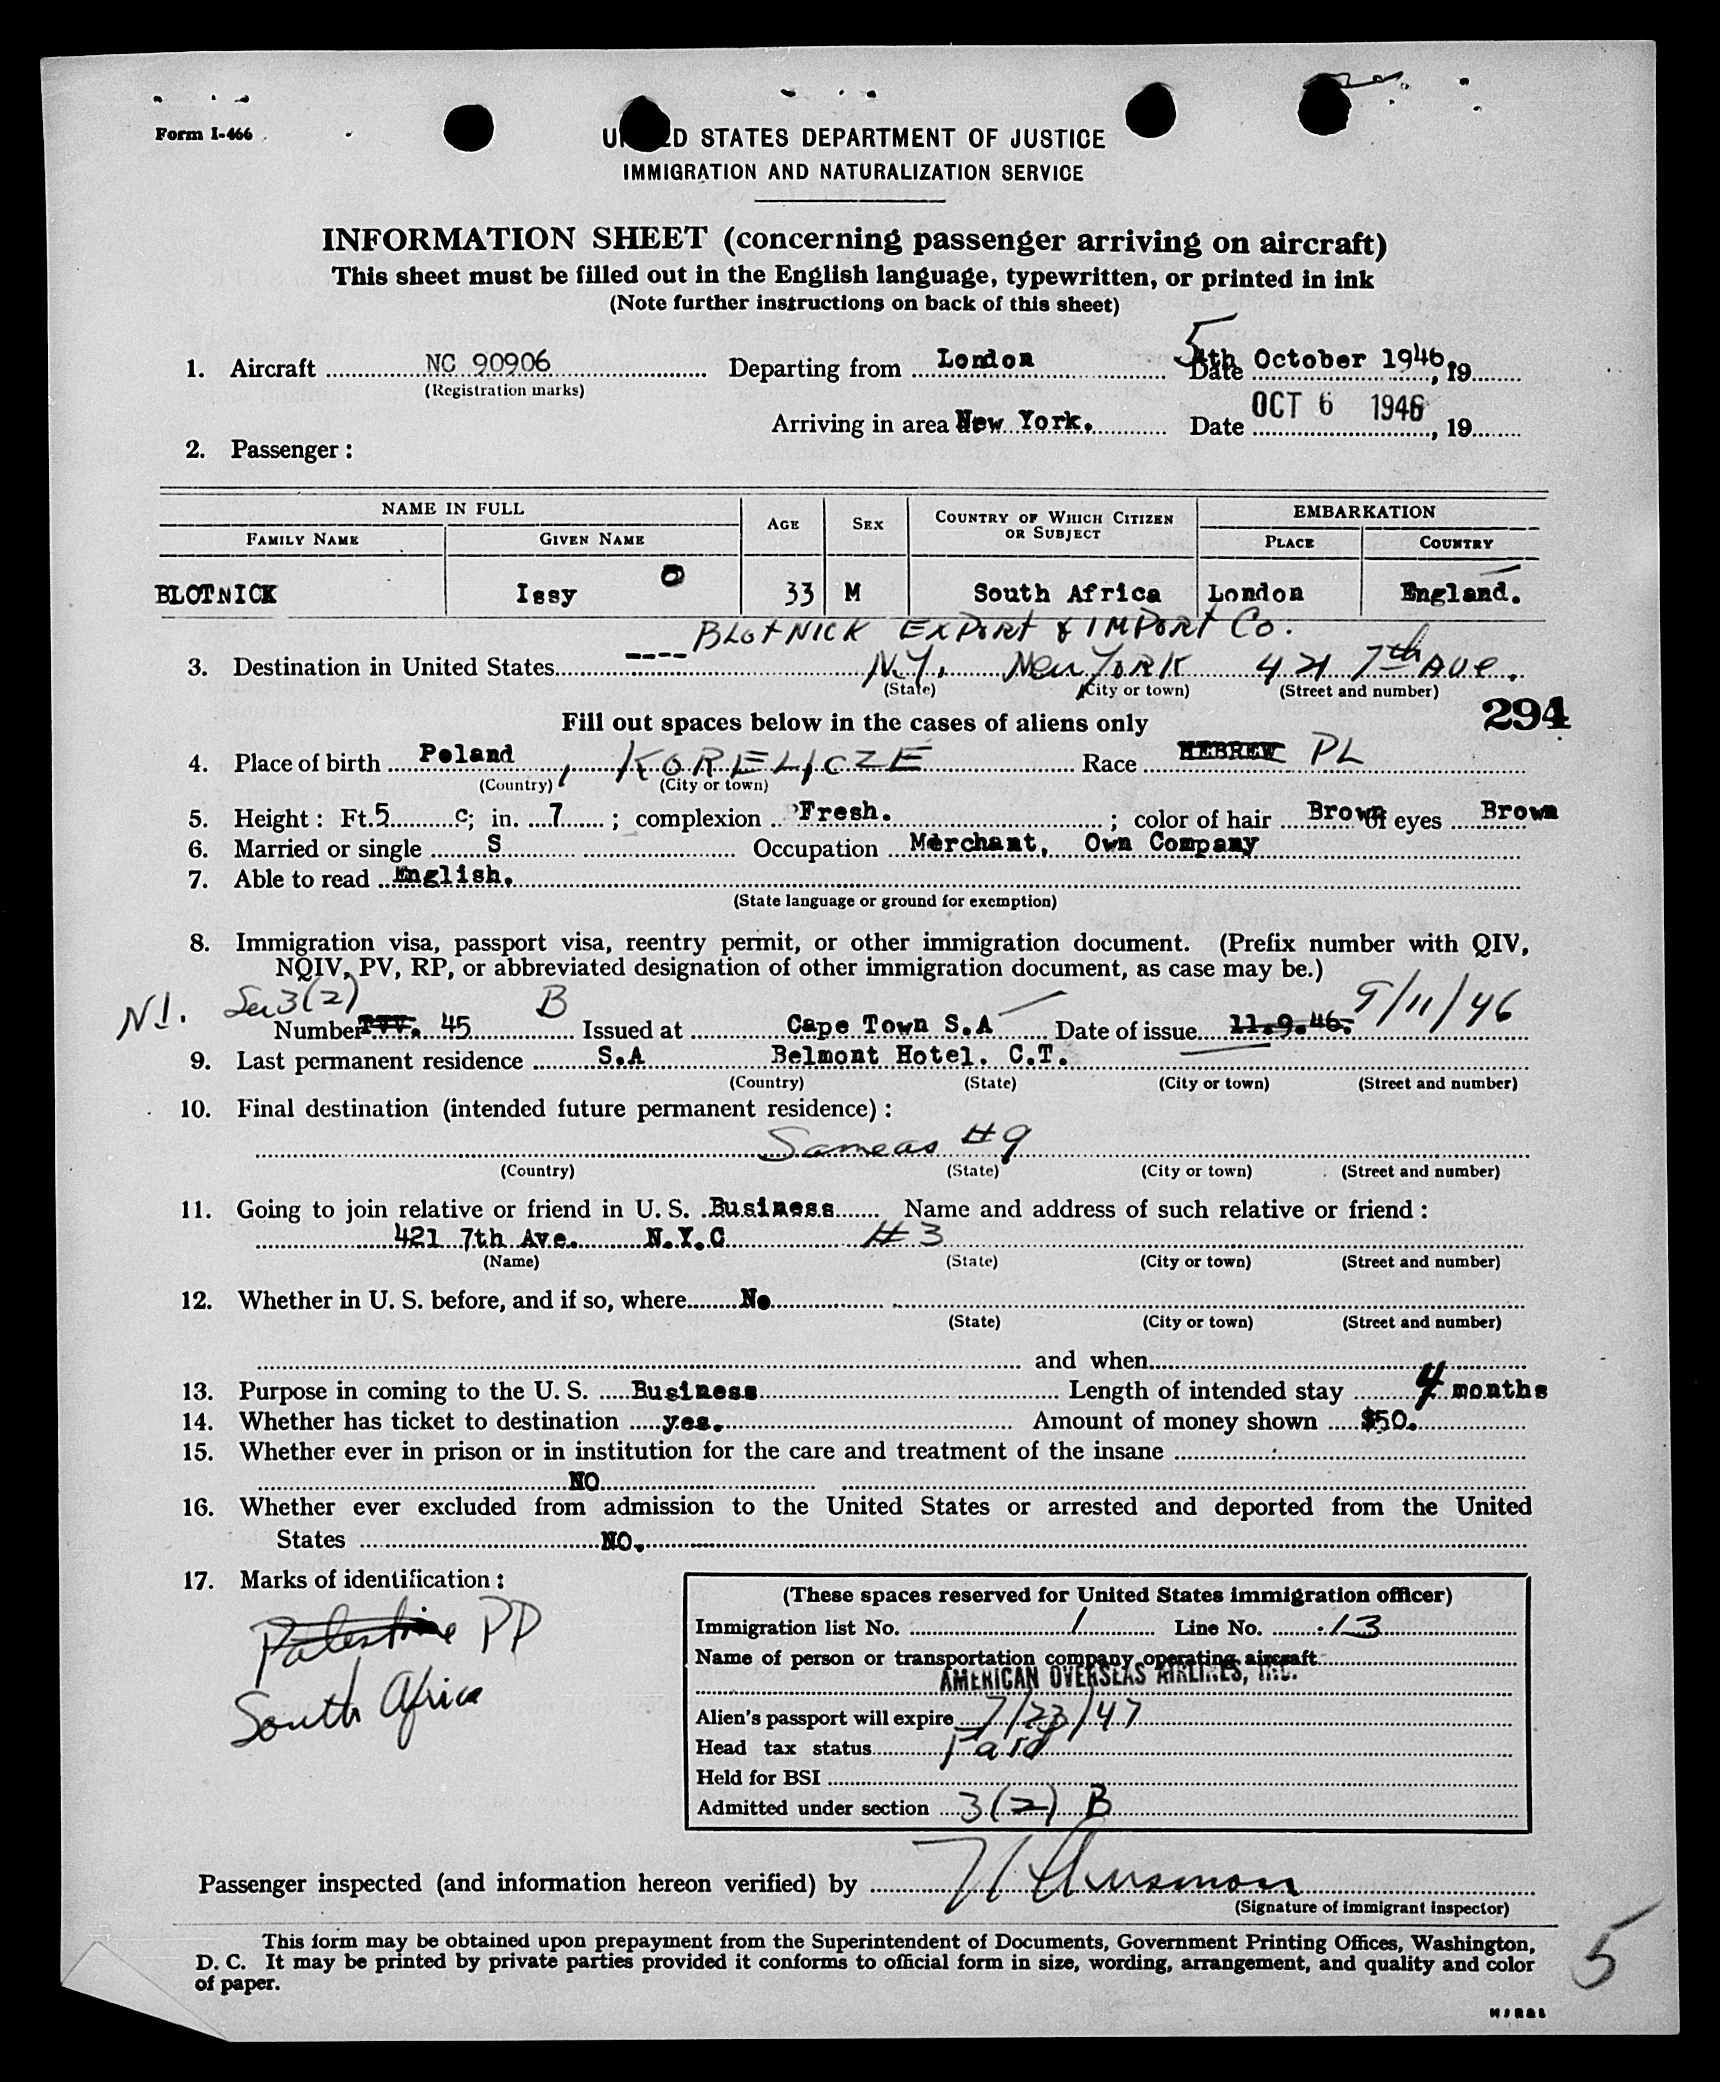 Form I-466
UNITED STATES DEPARTMENT OF JUSTICE
IMMIGRATION AND NATURALIZATION SERVICE
INFORMATION SHEET (concerning passenger arriving on aircraft)
This sheet must be filled out in the English language, typewritten, or printed in ink
(Note further instructions on back of this sheet)
1. Aircraft NC 90906 Departing from London Date 5 4th October 1946, 19
(Registration marks)
Arriving in area New York. Date OCT 6 1946, 19
2. Passenger:
NAME IN FULL AGE SEX COUNTRY OF WHICH CITIZEN OR SUBJECT EMBARKATION
FAMILY NAME GIVEN NAME PLACE COUNTRY
BLOTNICK Issy O 33 M South Africa London England.
BLOTNICK EXPORT & IMPORT Co.
3. Destination in United States N.Y. New YORK 421 7th AVE.
(State) (City or town) (Street and number)
Fill out spaces below in the cases of aliens only 294
4. Place of birth Poland, KORELICZE Race HEBREW PL
(Country) (City or town)
5. Height: Ft. 5 c; in. 7; complexion Fresh.; color of hair Brown of eyes Brown
6. Married or single S Occupation Merchant, Own Company
7. Able to read English.
(State language or ground for exemption)
8. Immigration visa, passport visa, reentry permit, or other immigration document. (Prefix number with QIV,
NQIV, PV, RP, or abbreviated designation of other immigration document, as case may be.)
N!. Sec 3(2) B 9/11/46
Number 45 Issued at Cape Town S.A Date of issue 11.9.46.
9. Last permanent residence S.A Belmont Hotel. C.T.
(Country) (State) (City or town) (Street and number)
10. Final destination (intended future permanent residence):
Same as #9
(Country) (State) (City or town) (Street and number)
11. Going to join relative or friend in U. S. Business Name and address of such relative or friend:
421 7th Ave. N.Y.C #3
(Name) (State) (City or town) (Street and number)
12. Whether in U. S. before, and if so, where No
(State) (City or town) (Street and number)
and when
13. Purpose in coming to the U. S. Business Length of intended stay 4 months
14. Whether has ticket to destination yes. Amount of money shown $50.
15. Whether ever in prison or in institution for the care and treatment of the insane
NO
16. Whether ever excluded from admission to the United States or arrested and deported from the United
States NO.
17. Marks of identification:
Palestine PP
South Africa
(These spaces reserved for United States immigration officer)
Immigration list No. 1 Line No. 13
Name of person or transportation company operating aircraft
AMERICAN OVERSEAS AIRLINES, INC.
Alien's passport will expire 7/23/47
Head tax status Paid
Held for BSI
Admitted under section 3(2) B
Passenger inspected (and information hereon verified) by
(Signature of immigrant inspector)
This form may be obtained upon prepayment from the Superintendent of Documents, Government Printing Offices, Washington,
D. C. It may be printed by private parties provided it conforms to official form in size, wording, arrangement, and quality and color
of paper.
5